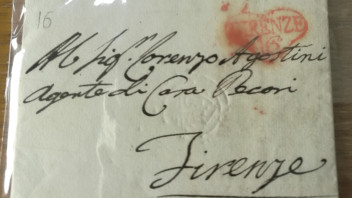 16
FIRENZE
Al Sig.r Lorenzo Agostini
Agente di Casa Pecori
Firenze